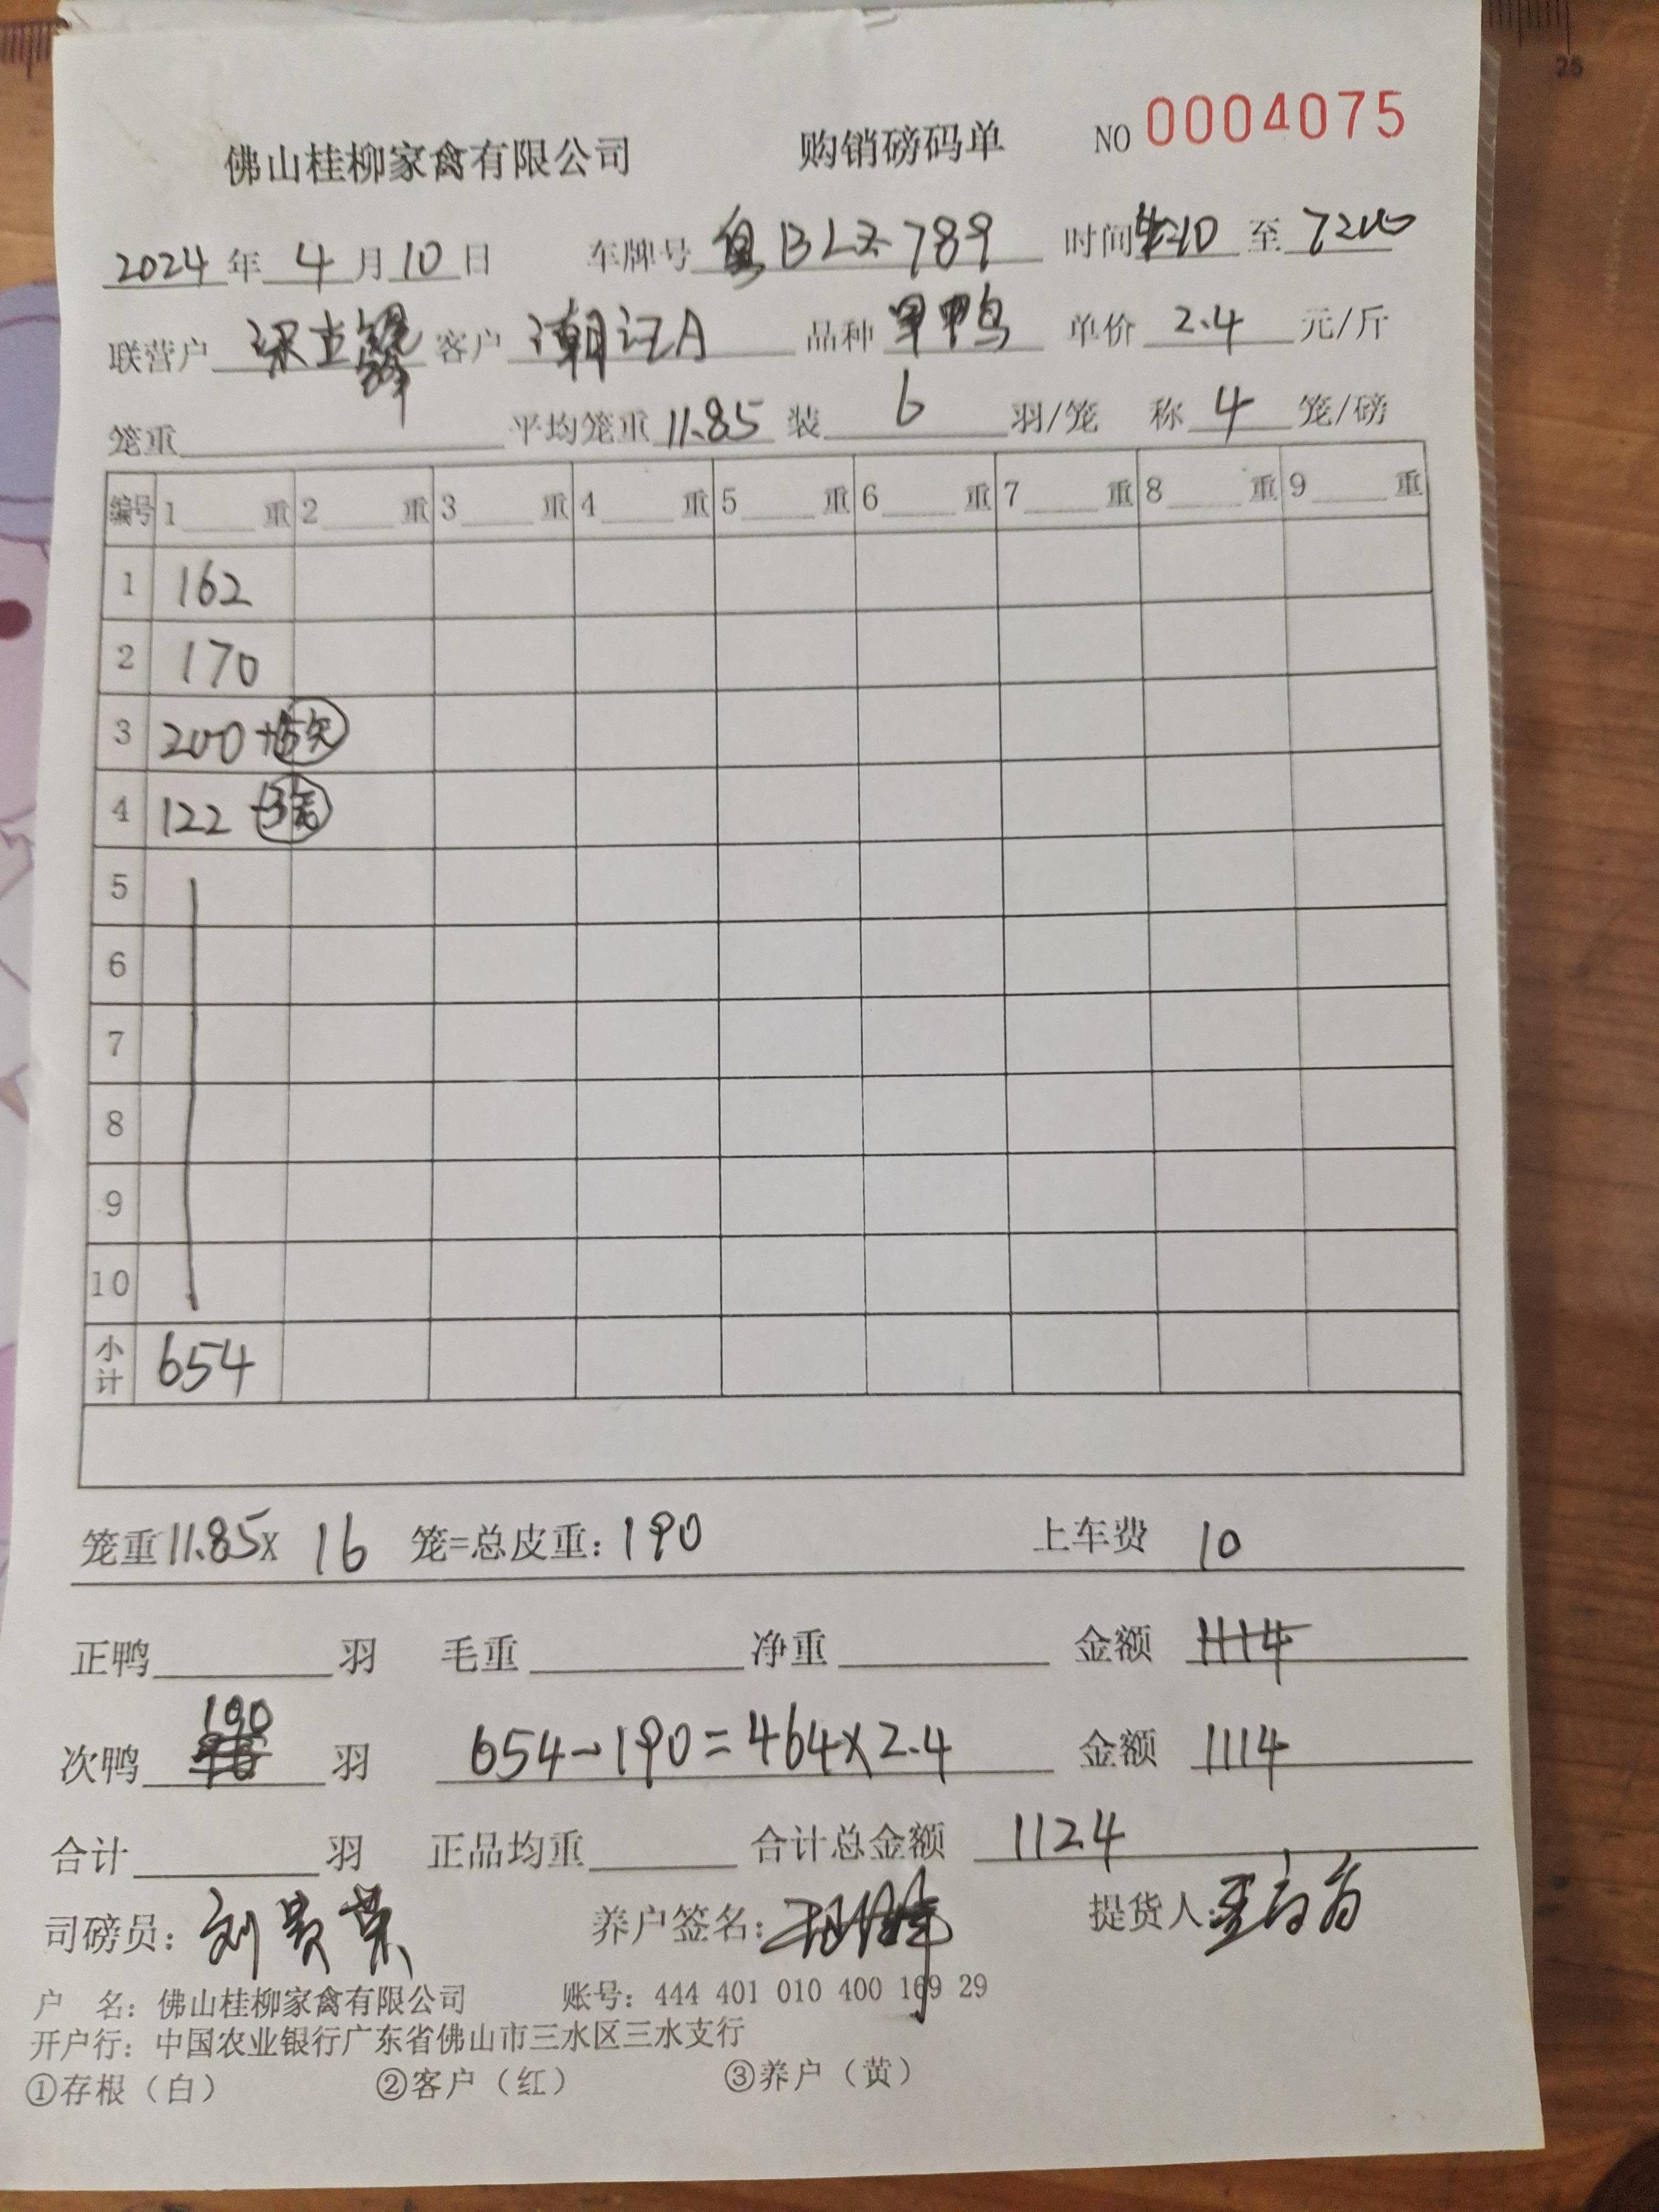 佛山桂柳家禽有限公司 购销磅码单 NO 0004075
2024 年 4 月 10 日 车牌号 粤BLZ789 时间 至 7200
联营户 客户 潮记A 品种 单价 2.4 元/斤
笼重 平均笼重 11.85 装 6 羽/笼 称 4 笼/磅
编号 1 重 2 重 3 重 4 重 5 重 6 重 7 重 8 重 9 重
1 162
2 170
3 200
4 122
5
6
7
8
9
10
小计 654
笼重 11.85 X 16 笼=总皮重: 190 上车费 10
正鸭 羽 毛重 净重 金额 1114
次鸭 190 羽 654-190=464×2.4 金额 1114
合计 羽 正品均重 合计总金额 1124
司磅员: 刘贵荣 养户签名: 提货人:
户 名: 佛山桂柳家禽有限公司 账号: 444 401 010 400 169 29
开户行: 中国农业银行广东省佛山市三水区三水支行
①存根（白） ②客户（红） ③养户（黄）